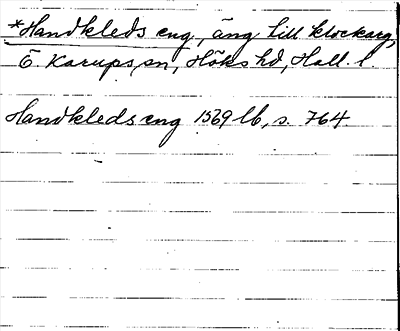 *Handkleds eng, äng till klockarg,
Ö. Karups sn, Höks hd, Hall. l.
Handkleds eng 1569 lb, s. 764